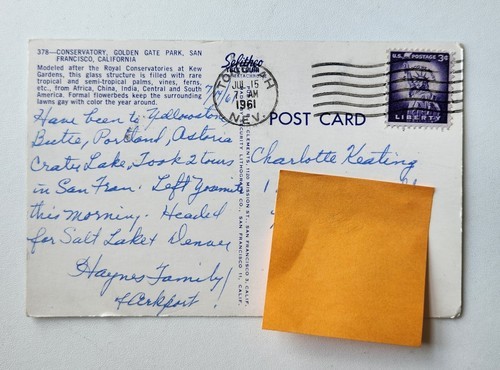 378—CONSERVATORY, GOLDEN GATE PARK, SAN
FRANCISCO, CALIFORNIA
Modeled after the Royal Conservatories at Kew
Gardens, this glass structure is filled with rare
tropical and semi-tropical palms, vines, ferns,
etc., from Africa, China, India, Central and South
America. Formal flowerbeds keep the surrounding
lawns gay with color the year around.
Have been to Yellowstone
Butte, Portland, Astoria
Crater Lake, Took 2 tours
in San Fran. Left Yosemite
this morning. Headed
for Salt Lake & Denver
Haynes Family
Arkport!
TONOPAH
JUL 15
7 AM
1961
NEV.
U.S. POSTAGE 3¢
LIBERTY
POST CARD
Charlotte Keating